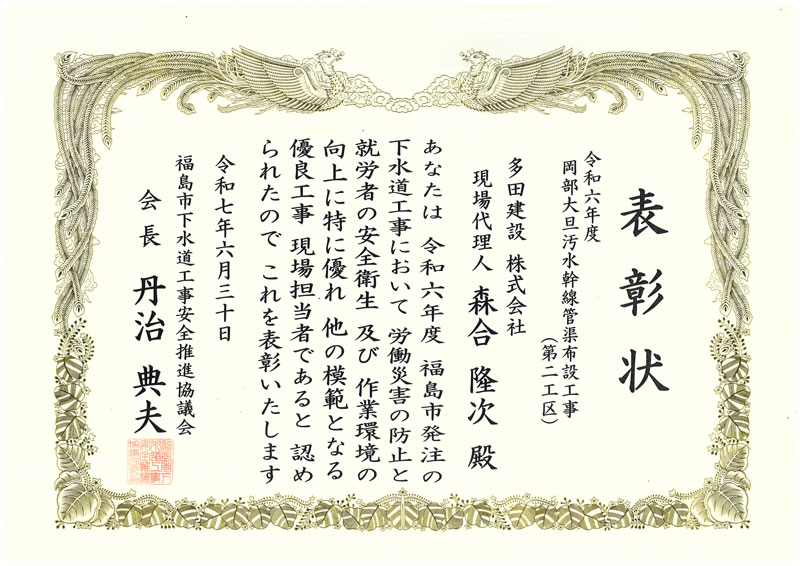 表彰状
令和六年度
岡部大旦汚水幹線管渠布設工事
(第二工区)
多田建設 株式会社
現場代理人 森合 隆次 殿
あなたは 令和六年度 福島市発注の
下水道工事において 労働災害の防止と
就労者の安全衛生 及び 作業環境の
向上に特に優れ 他の模範となる
優良工事 現場担当者であると 認め
られたので これを表彰いたします
令和七年六月三十日
福島市下水道工事安全推進協議会
会長 丹治 典夫